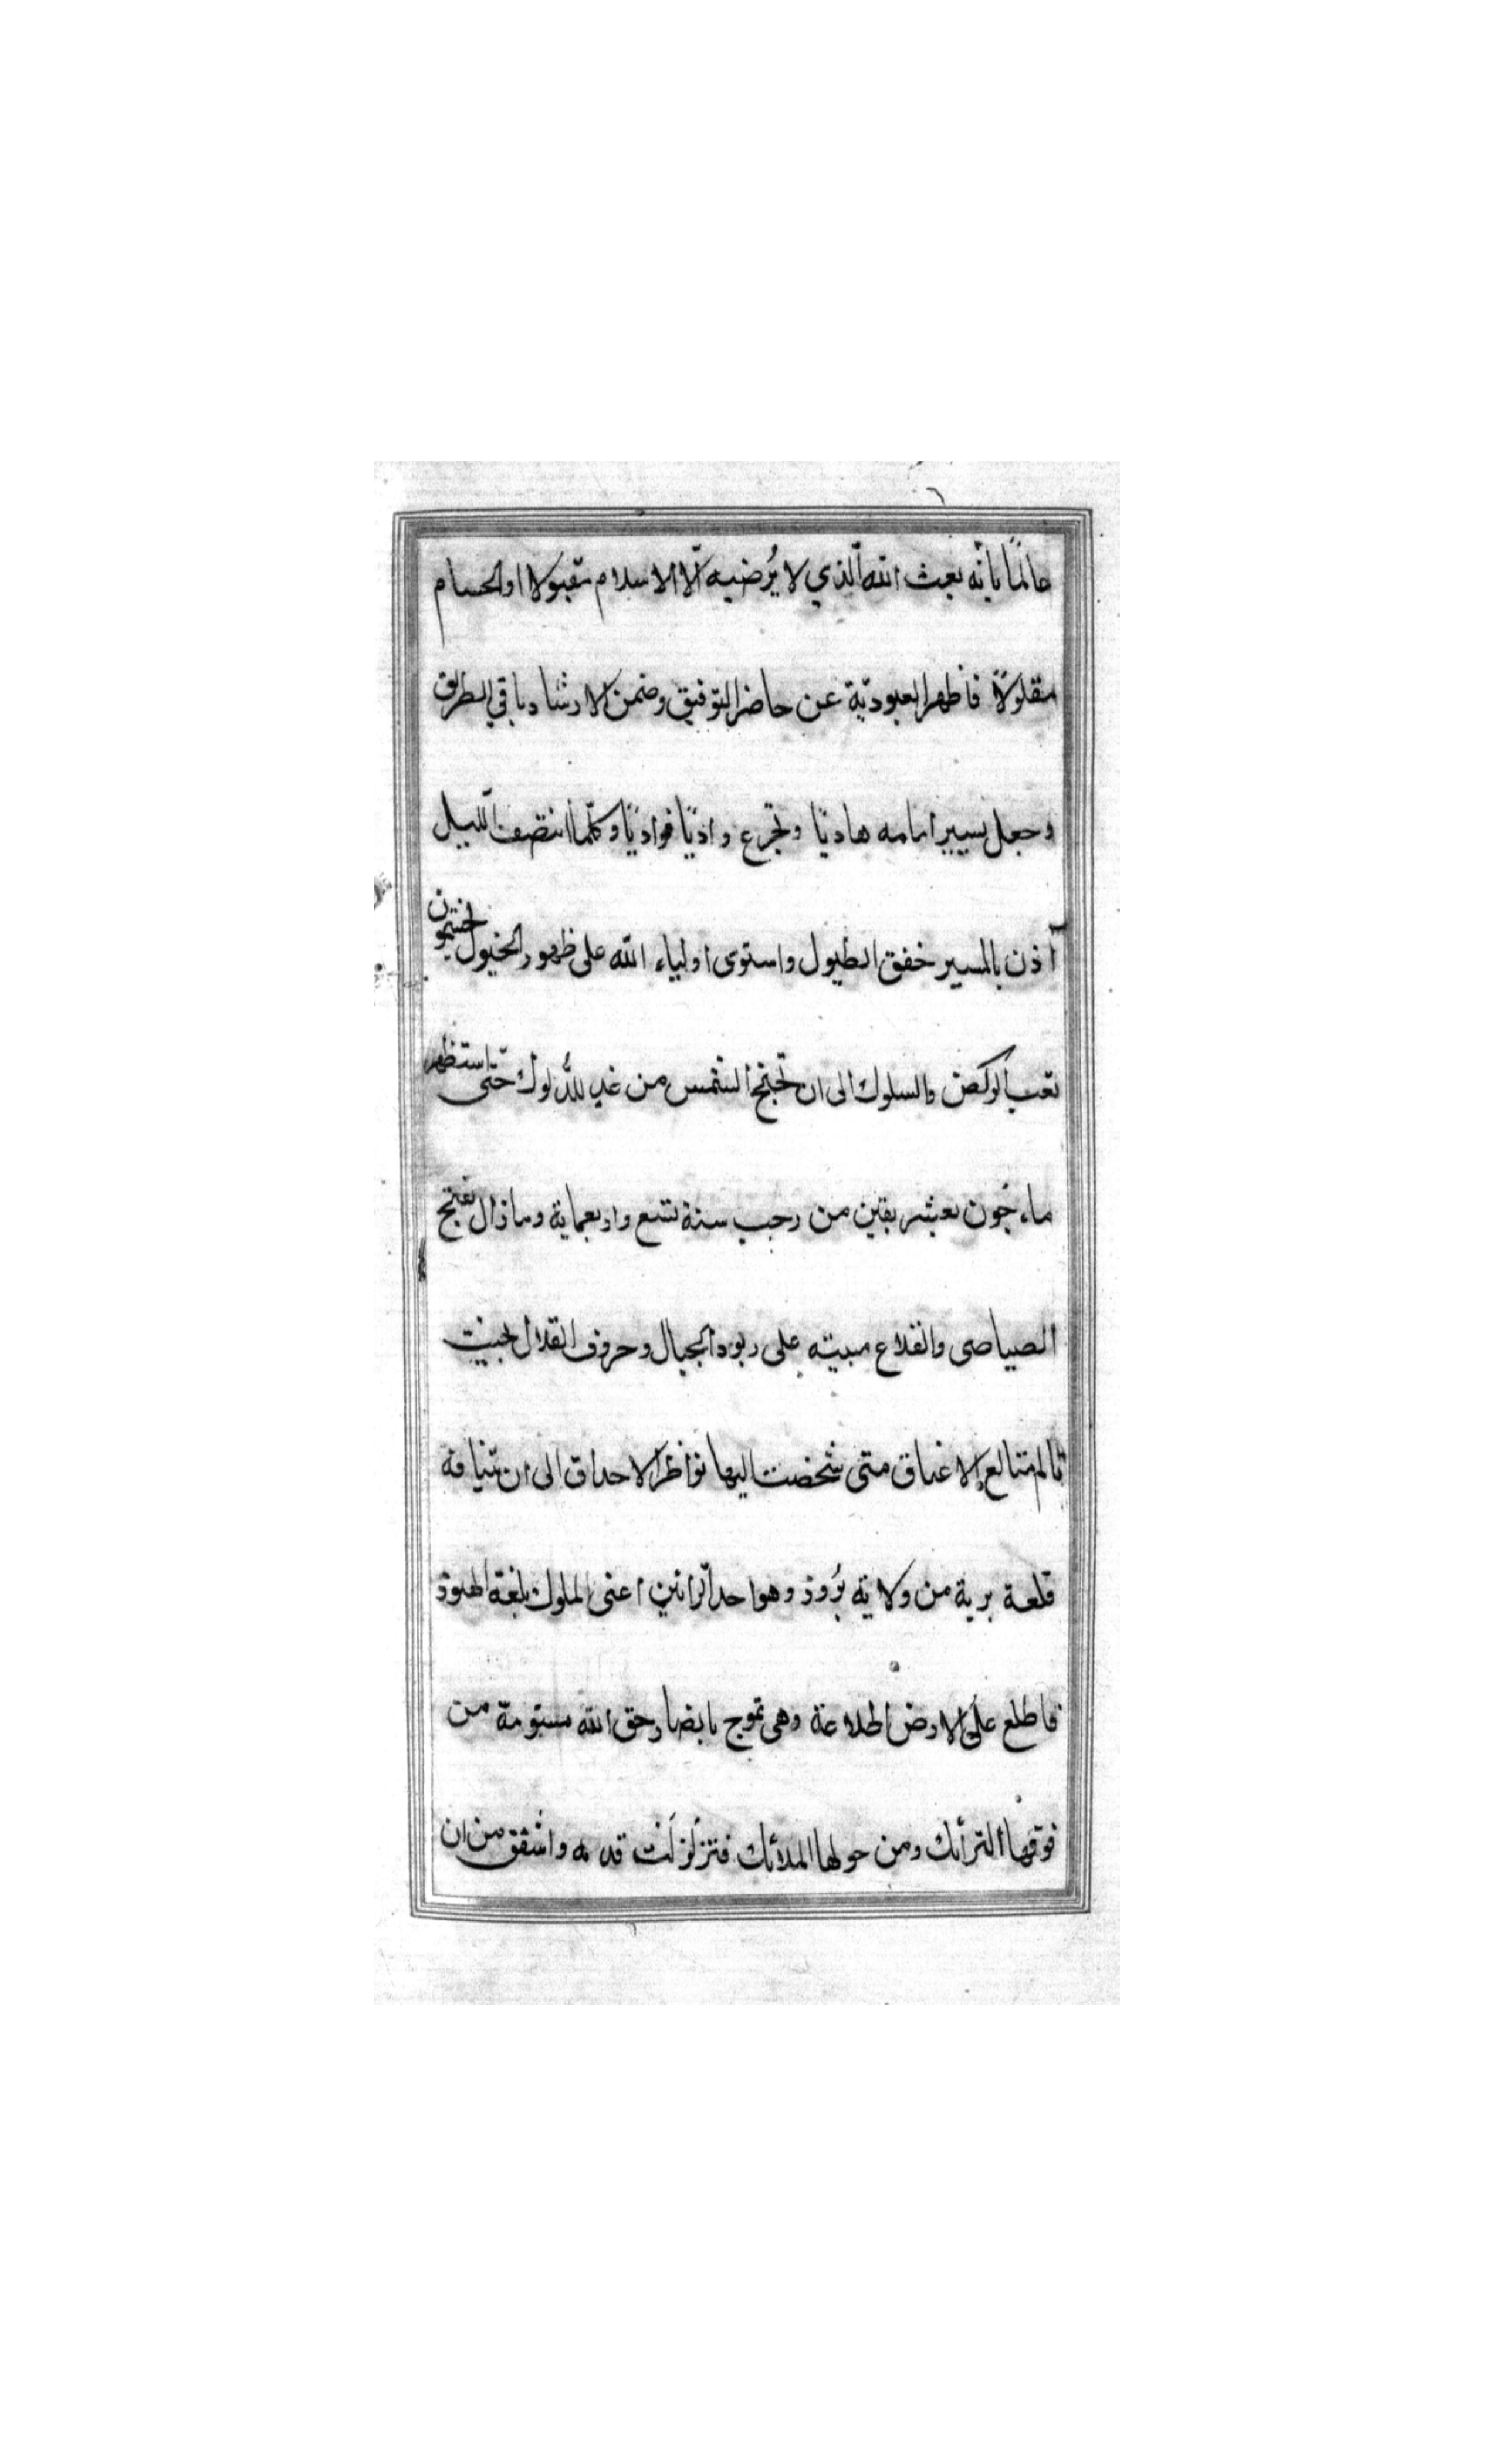 عالمًا بأنّه بعث الله الّذي لا يُرضيه الّا الاسلام مقبولا او الحسام
مقلولًا فاظهر العبوديّة عن حاضر التوفيق وضمن الارشاد باقي الطريق
وجعل يسير امامه هاديًا وتجرع واديًا فواديًا وكلّما انتصف اللّيل
آذن بالمسير خفق الطبول واستوى اولياء الله على ظهور الخيول
تعب الركض والسلوك الى ان تجنح الشمس من غد للدُلوك حتّى استظهر
ماء جون لعشر بقين من رجب سنة تسع واربعماية وما زال يفتح
الصياصى والقلاع مبنيته على ربود الجبال وحروف القلال بحيث
الاعناق متى شخصت اليها نواظر الاحداق الى ان
قلعة برية من ولاية بُروذ وهو احد الرانين اعنى الملوك بلغة الهنود
فاطلع على الارض اطلاعة وهى تموج بانصار حق الله مستومة من
فوقها الترائك ومن حولها الملائك فتزلزلت قدمه واشفق من ان